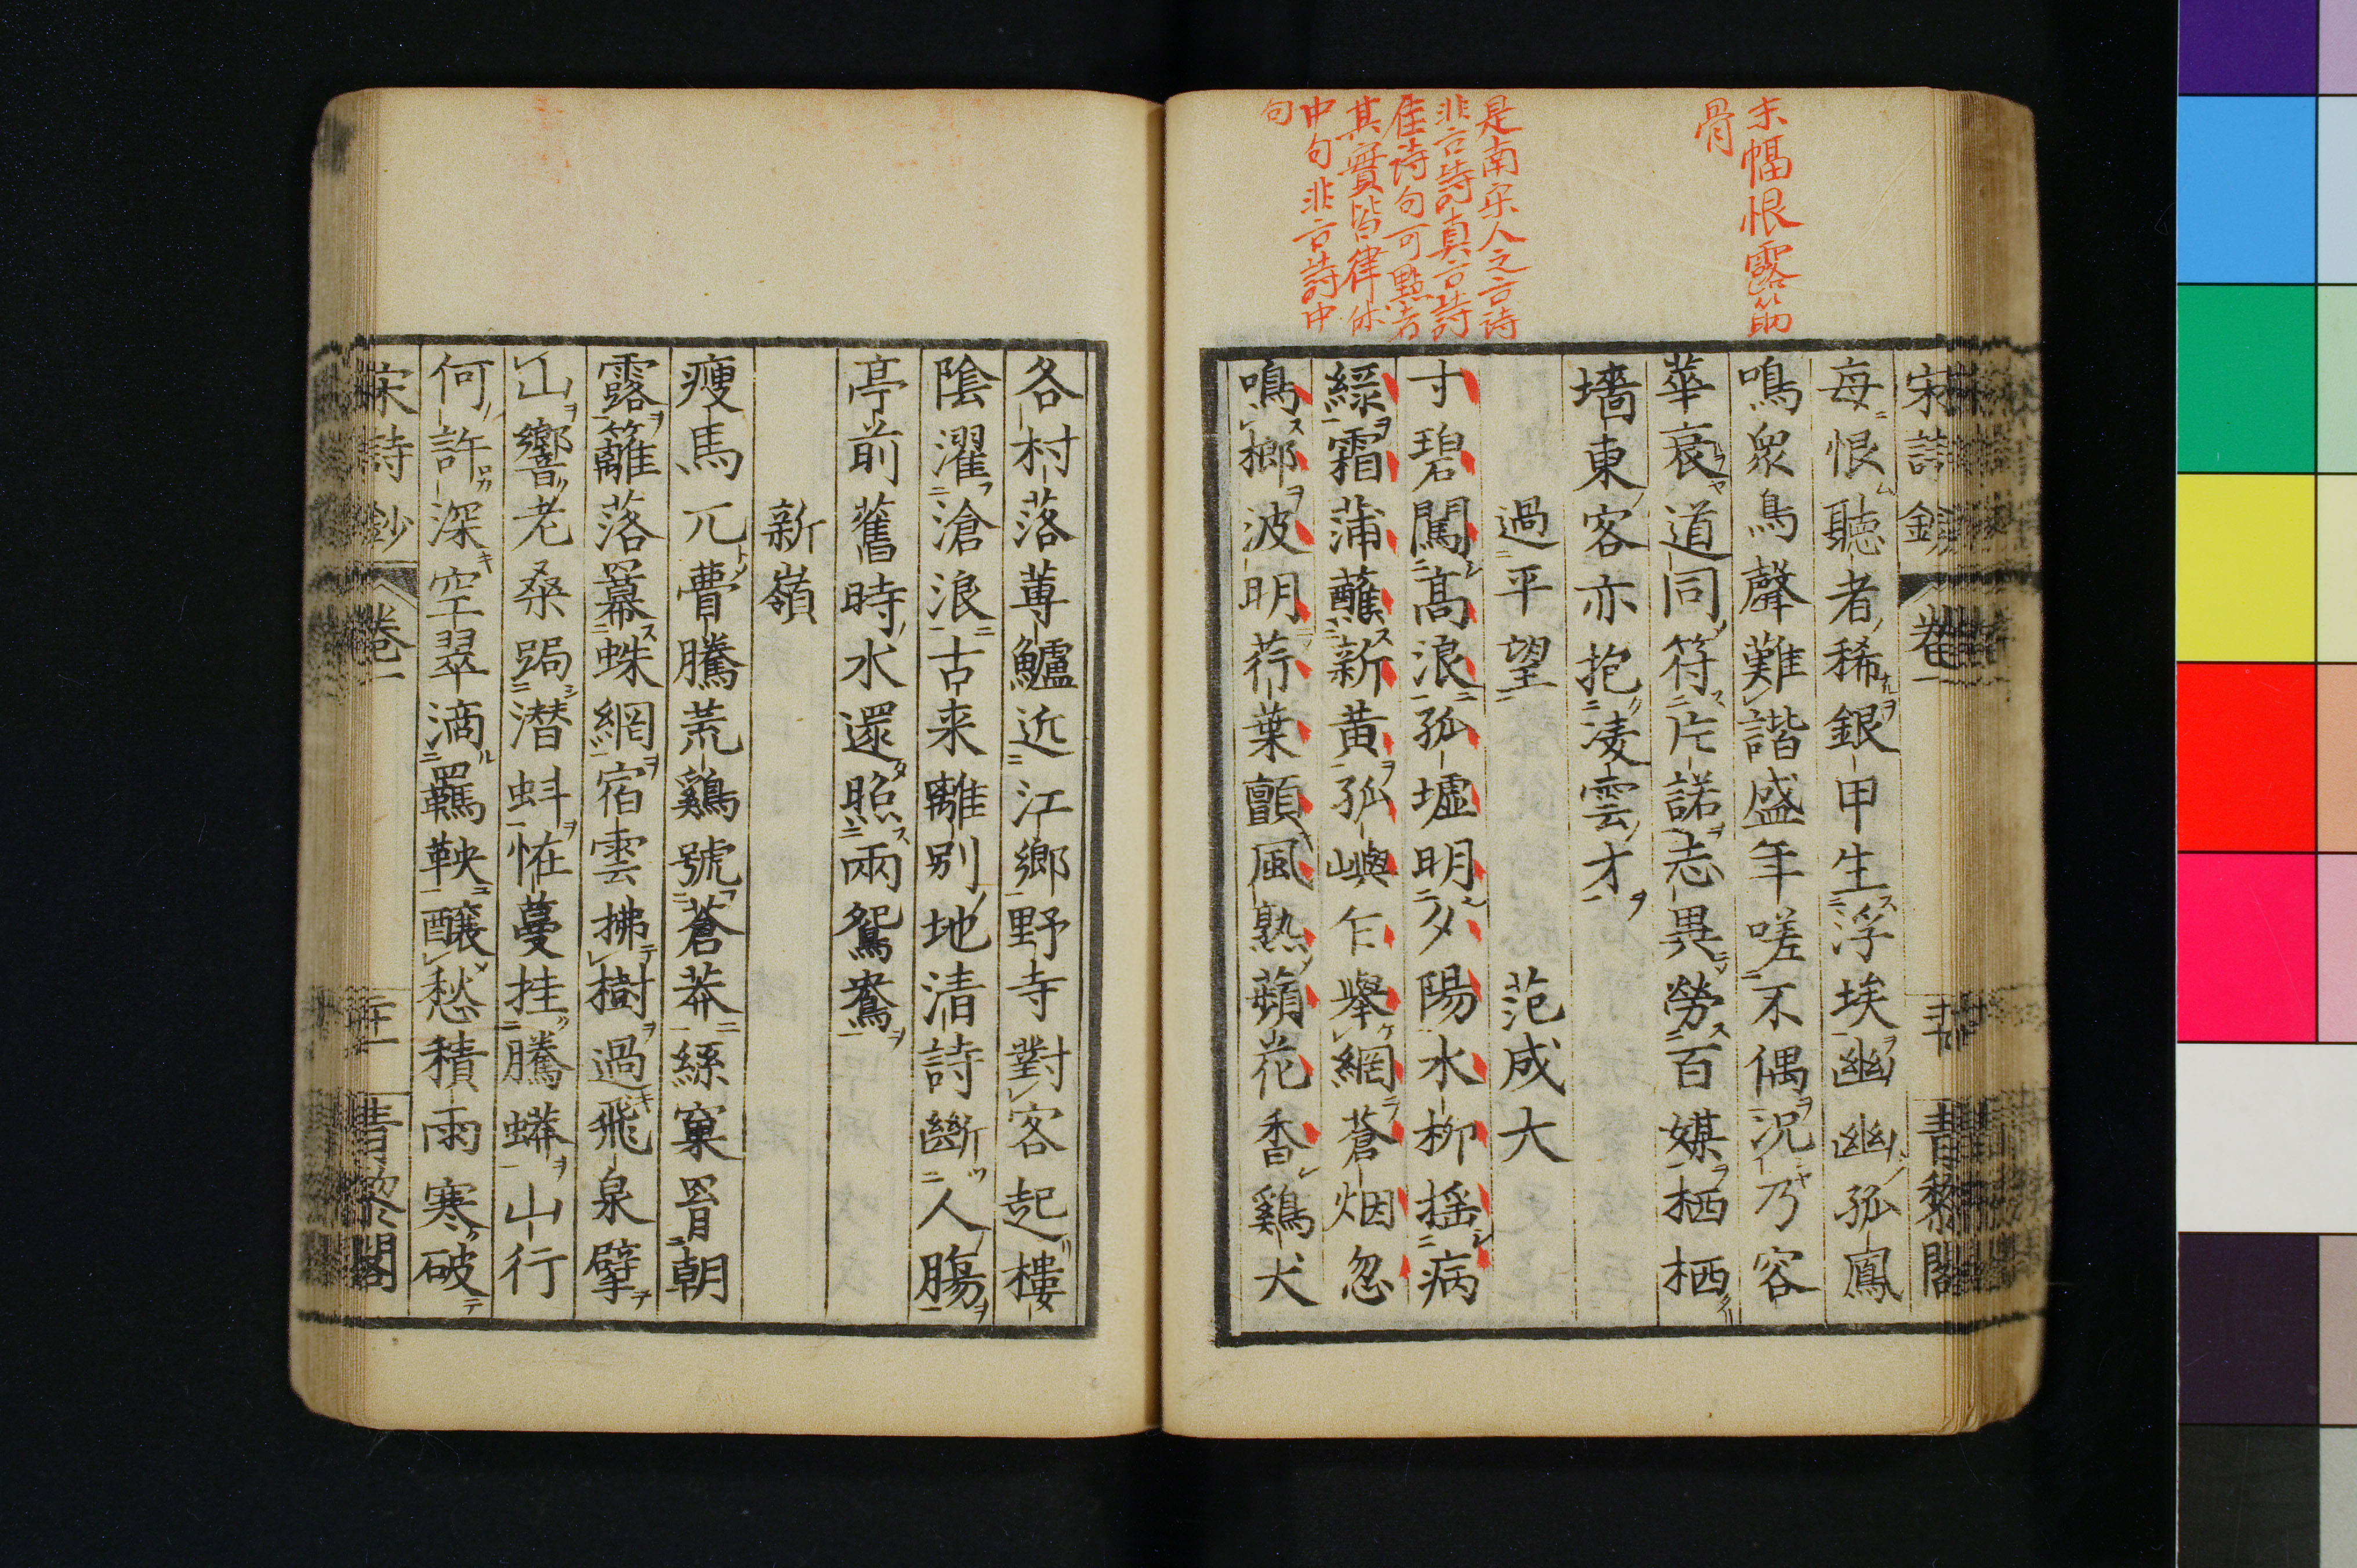 末幅恨露筋
骨
是南宋人之言詩
非言詩真言詩
佳詩句可點者
其實皆律体
中句非言詩中
句
宋詩鈔 卷一 青黎閣
每恨聽者稀銀甲生浮埃幽幽孤鳳
鳴衆鳥聲難諧盛年嗟不偶況乃容
華衰道同符片諾志異勞百媒栖栖
墻東客亦抱凌雲才
過平望 范成大
寸碧闖高浪孤墟明夕陽水柳揺病
綠霜蒲蘸新黃孤嶼乍擧網蒼烟忽
鳴榔波明荇葉顫風熟蘋花香鷄犬
各村落蓴鱸近江鄉野寺對客起樓
陰濯滄浪古来離別地清詩斷人膓
亭前舊時水還照兩鴛鴦
新嶺
瘦馬兀瞢騰荒鷄號蒼莽絲窠罥朝
露籬落羃蛛網宿雲拂樹過飛泉擘
山響老桑跼潜蚪怪蔓挂騰蟒山行
何許深空翠滴羈鞅醸愁積雨寒破
宋詩鈔 卷一 青黎閣